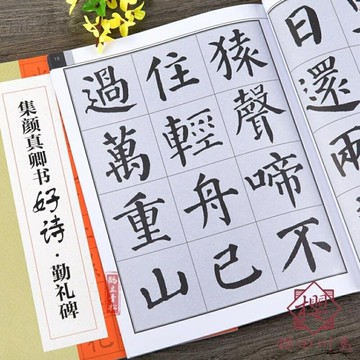 日還兩
猿聲啼不
住輕舟已
過萬重山
集颜真卿书好诗·勤礼碑